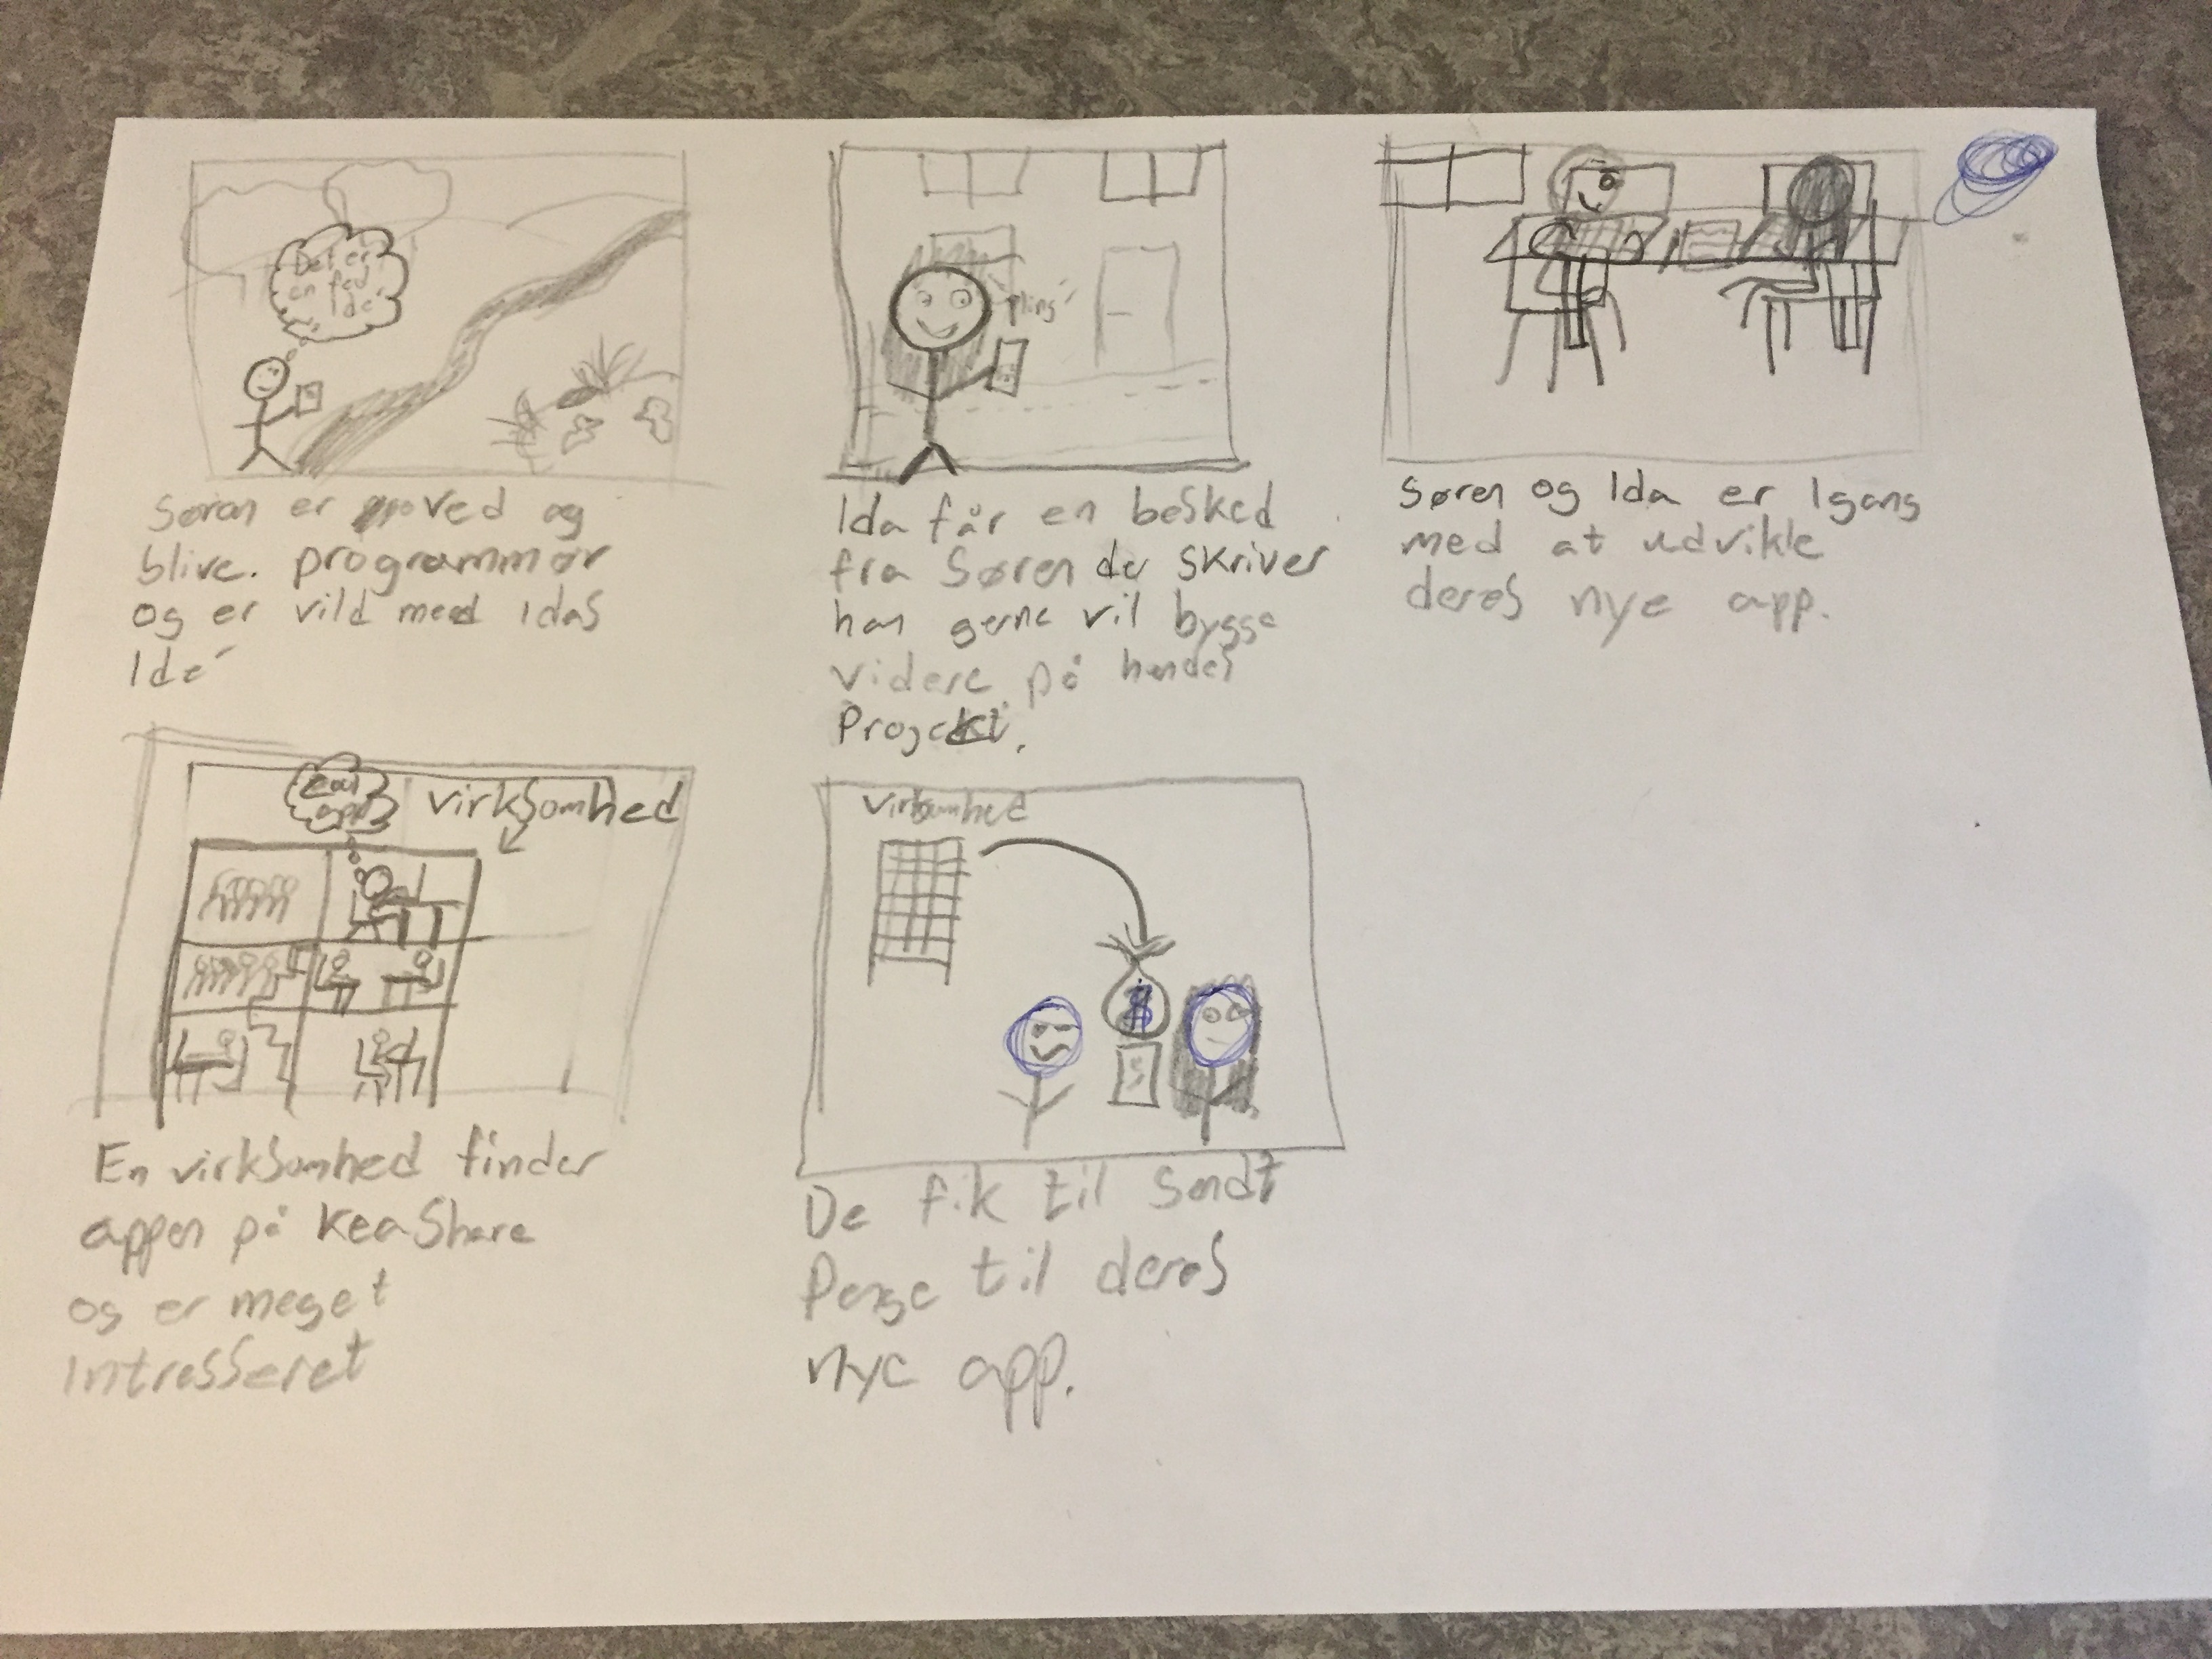 Det er
en fed
Ide
Søren er møved og
blive programmør
og er vild med Idas
Ide
Pling!
Ida får en besked
fra Søren der skriver
han gerne vil bygge
videre på hendes
Projekt.
Søren og Ida er Igang
med at udvikle
deres nye app.
Virksomhed
En virksomhed finder
appen på KeaShare
og er meget
Intrasseret
Virksomhed
$
De fik til sendt
Penge til deres
nye app.